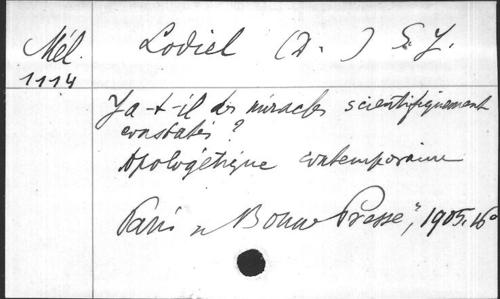 Mél. Lodiel (D. ) S. J.
1114
Y a-t-il des miracles scientifiquement
constatés ?
Apologétique contemporaine
Paris "Bonne Presse", 1905. 16°